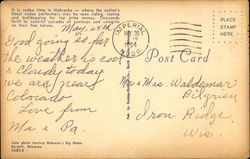 It is rodeo time in Nebraska - where the nation's
finest rodeo performers may be seen riding, roping
and bulldogging for top prize money. Thousands
thrill to colorful parades of cowboys and cowgirls
on their fine horses.
IMPERIAL
1964
NEBR.
May, 29th
Good going so far
the weather is cool
& Cloudy today
we are near
Colorado
Love from
Ma & Pa.
Post Card
Mr & Mrs Waldemar
Bilgrien
Iron Ridge,
Wis.
Color photo courtesy Nebraska's Big Rodeo
Burwell, Nebraska